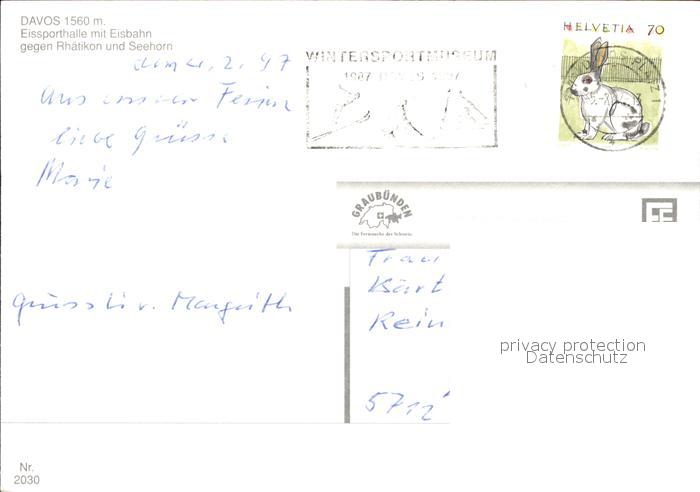 DAVOS 1560 m.
Eissporthalle mit Eisbahn
gegen Rhätikon und Seehorn
den 4. 2. 97
Aus unseren Ferien
liebe Grüsse
Marie
Grüssli v. Margrith
WINTERSPORTMUSEUM
1987 DAVOS 1997
HELVETIA 70
GRAUBÜNDEN
Die Ferienecke der Schweiz
Frau
Kärt
Rein
5712
privacy protection
Datenschutz
Nr.
2030